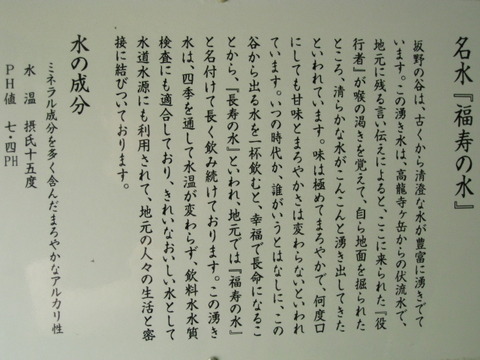 名水『福寿の水』
坂野の谷は、古くから清澄な水が豊富に湧きでて
います。この湧き水は、高龍寺ヶ岳からの伏流水で、
地元に残る言い伝えによると、ここに来られた『役
行者』が喉の渇きを覚えて、自ら地面を掘られた
ところ、清らかな水がこんこんと湧き出してきた
といわれています。味は極めてまろやかで、何度口
にしても甘味とまろやかさは変わらないといわれ
ています。いつの時代か、誰がいうとはなしに、この
谷から出る水を一杯飲むと、幸福で長命になるこ
とから、『長寿の水』といわれ、地元では『福寿の水』
と名付けて長く飲み続けております。この湧き
水は、四季を通して水温が変わらず、飲料水水質
検査にも適合しており、きれいなおいしい水として
水道水源にも利用されて、地元の人々の生活と密
接に結びついております。
水の成分
ミネラル成分を多く含んだまろやかなアルカリ性
水　温　摂氏十五度
ＰＨ値　七・四ＰＨ